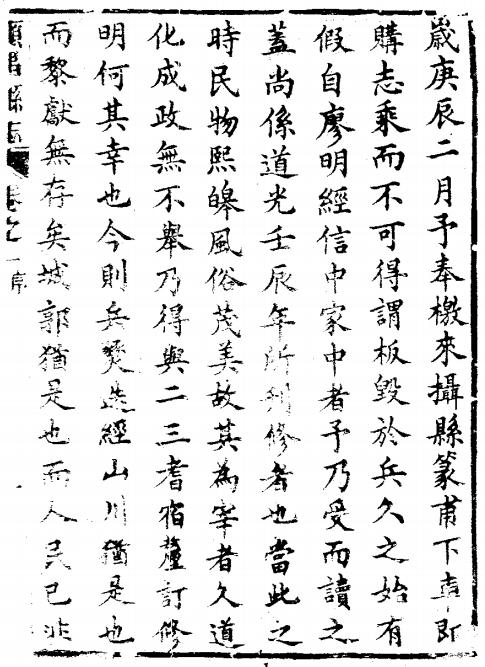 歲庚辰二月予奉檄來攝縣篆甫下車即
購志乘而不可得謂板毀於兵久之始有
假自廖明經信中家中者予乃受而讀之
蓋尚係道光壬辰年所刊修者也當此之
時民物熙皞風俗茂美故其為宰者久道
化成政無不舉乃得與二三耆宿釐訂修
明何其幸也今則兵燹迭經山川猶是也
而黎獻無存矣城郭猶是也而人民已非
順昌縣志 卷之一序